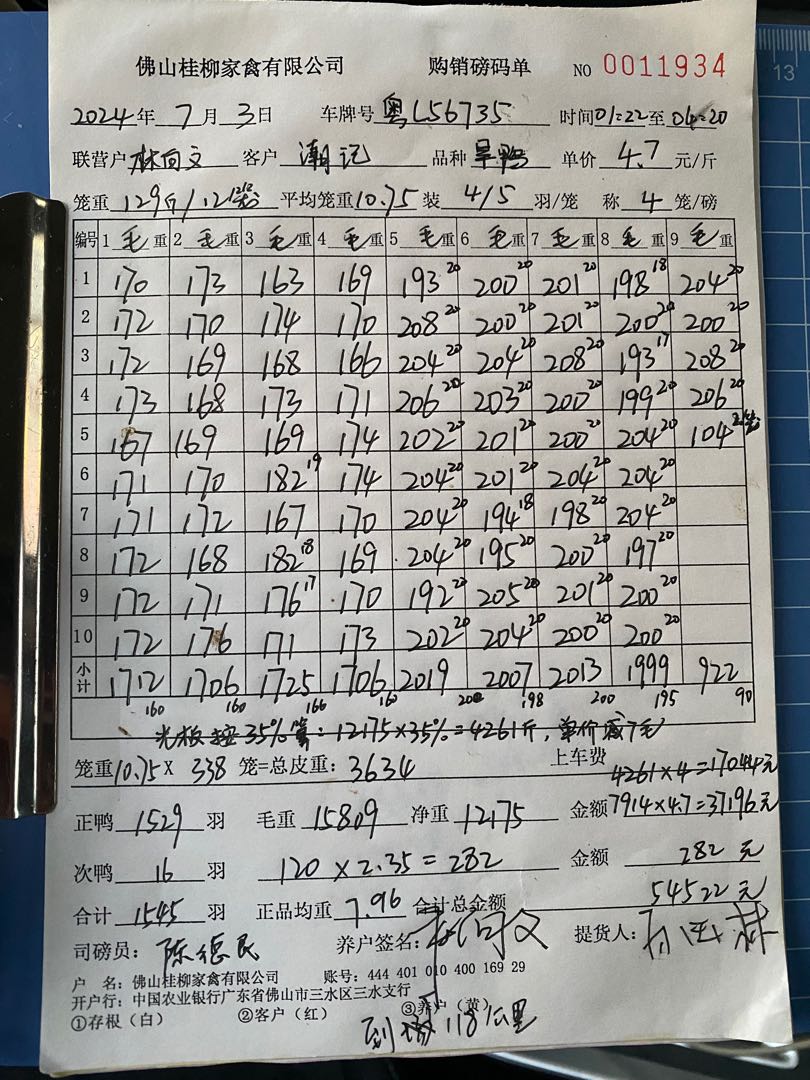 佛山桂柳家禽有限公司 购销磅码单 NO 0011934
2024年 7月 3日 车牌号 粤L56735 时间01:22至 04:20
联营户 林向文 客户 潮记 品种 旱鸭 单价 4.7 元/斤
笼重 129斤/12笼 平均笼重10.75 装 4/5 羽/笼 称 4 笼/磅
编号 1 毛重 2 毛重 3 毛重 4 毛重 5 毛重 6 毛重 7 毛重 8 毛重 9 毛重
1 170 173 163 169 193 20 200 20 201 20 198 18 204 20
2 172 170 174 170 208 20 200 20 201 20 200 20 200 20
3 172 169 168 166 204 20 204 20 208 20 193 17 208 20
4 173 168 173 171 206 20 203 20 200 20 199 20 206 20
5 167 169 169 174 202 20 201 20 200 20 204 20 104
6 171 170 182 19 174 204 20 201 20 204 20 204 20
7 171 172 167 170 204 20 194 18 198 20 204 20
8 172 168 182 18 169 204 20 195 20 200 20 197 20
9 172 171 176 17 170 192 20 205 20 201 20 200 20
10 172 176 171 173 202 20 204 20 200 20 200 20
小计 1712 1706 1725 1706 2019 2007 2013 1999 922
160 160 166 160 200 198 200 195 90
光板按35%算:12175×35%=4261斤,单价减7毛
笼重10.75× 338 笼=总皮重: 3634 上车费 4261×4=17044元
正鸭 1529 羽 毛重 15809 净重 12175 金额7914×4.7=37196元
次鸭 16 羽 120 × 2.35 = 282 金额 282 元
合计 1545 羽 正品均重 7.96 合计总金额 54522 元
司磅员: 陈德民 养户签名: 林向文 提货人:
户 名:佛山桂柳家禽有限公司 账号:444 401 010 400 169 29
开户行:中国农业银行广东省佛山市三水区三水支行
①存根(白) ②客户(红) ③养户(黄)
118公里